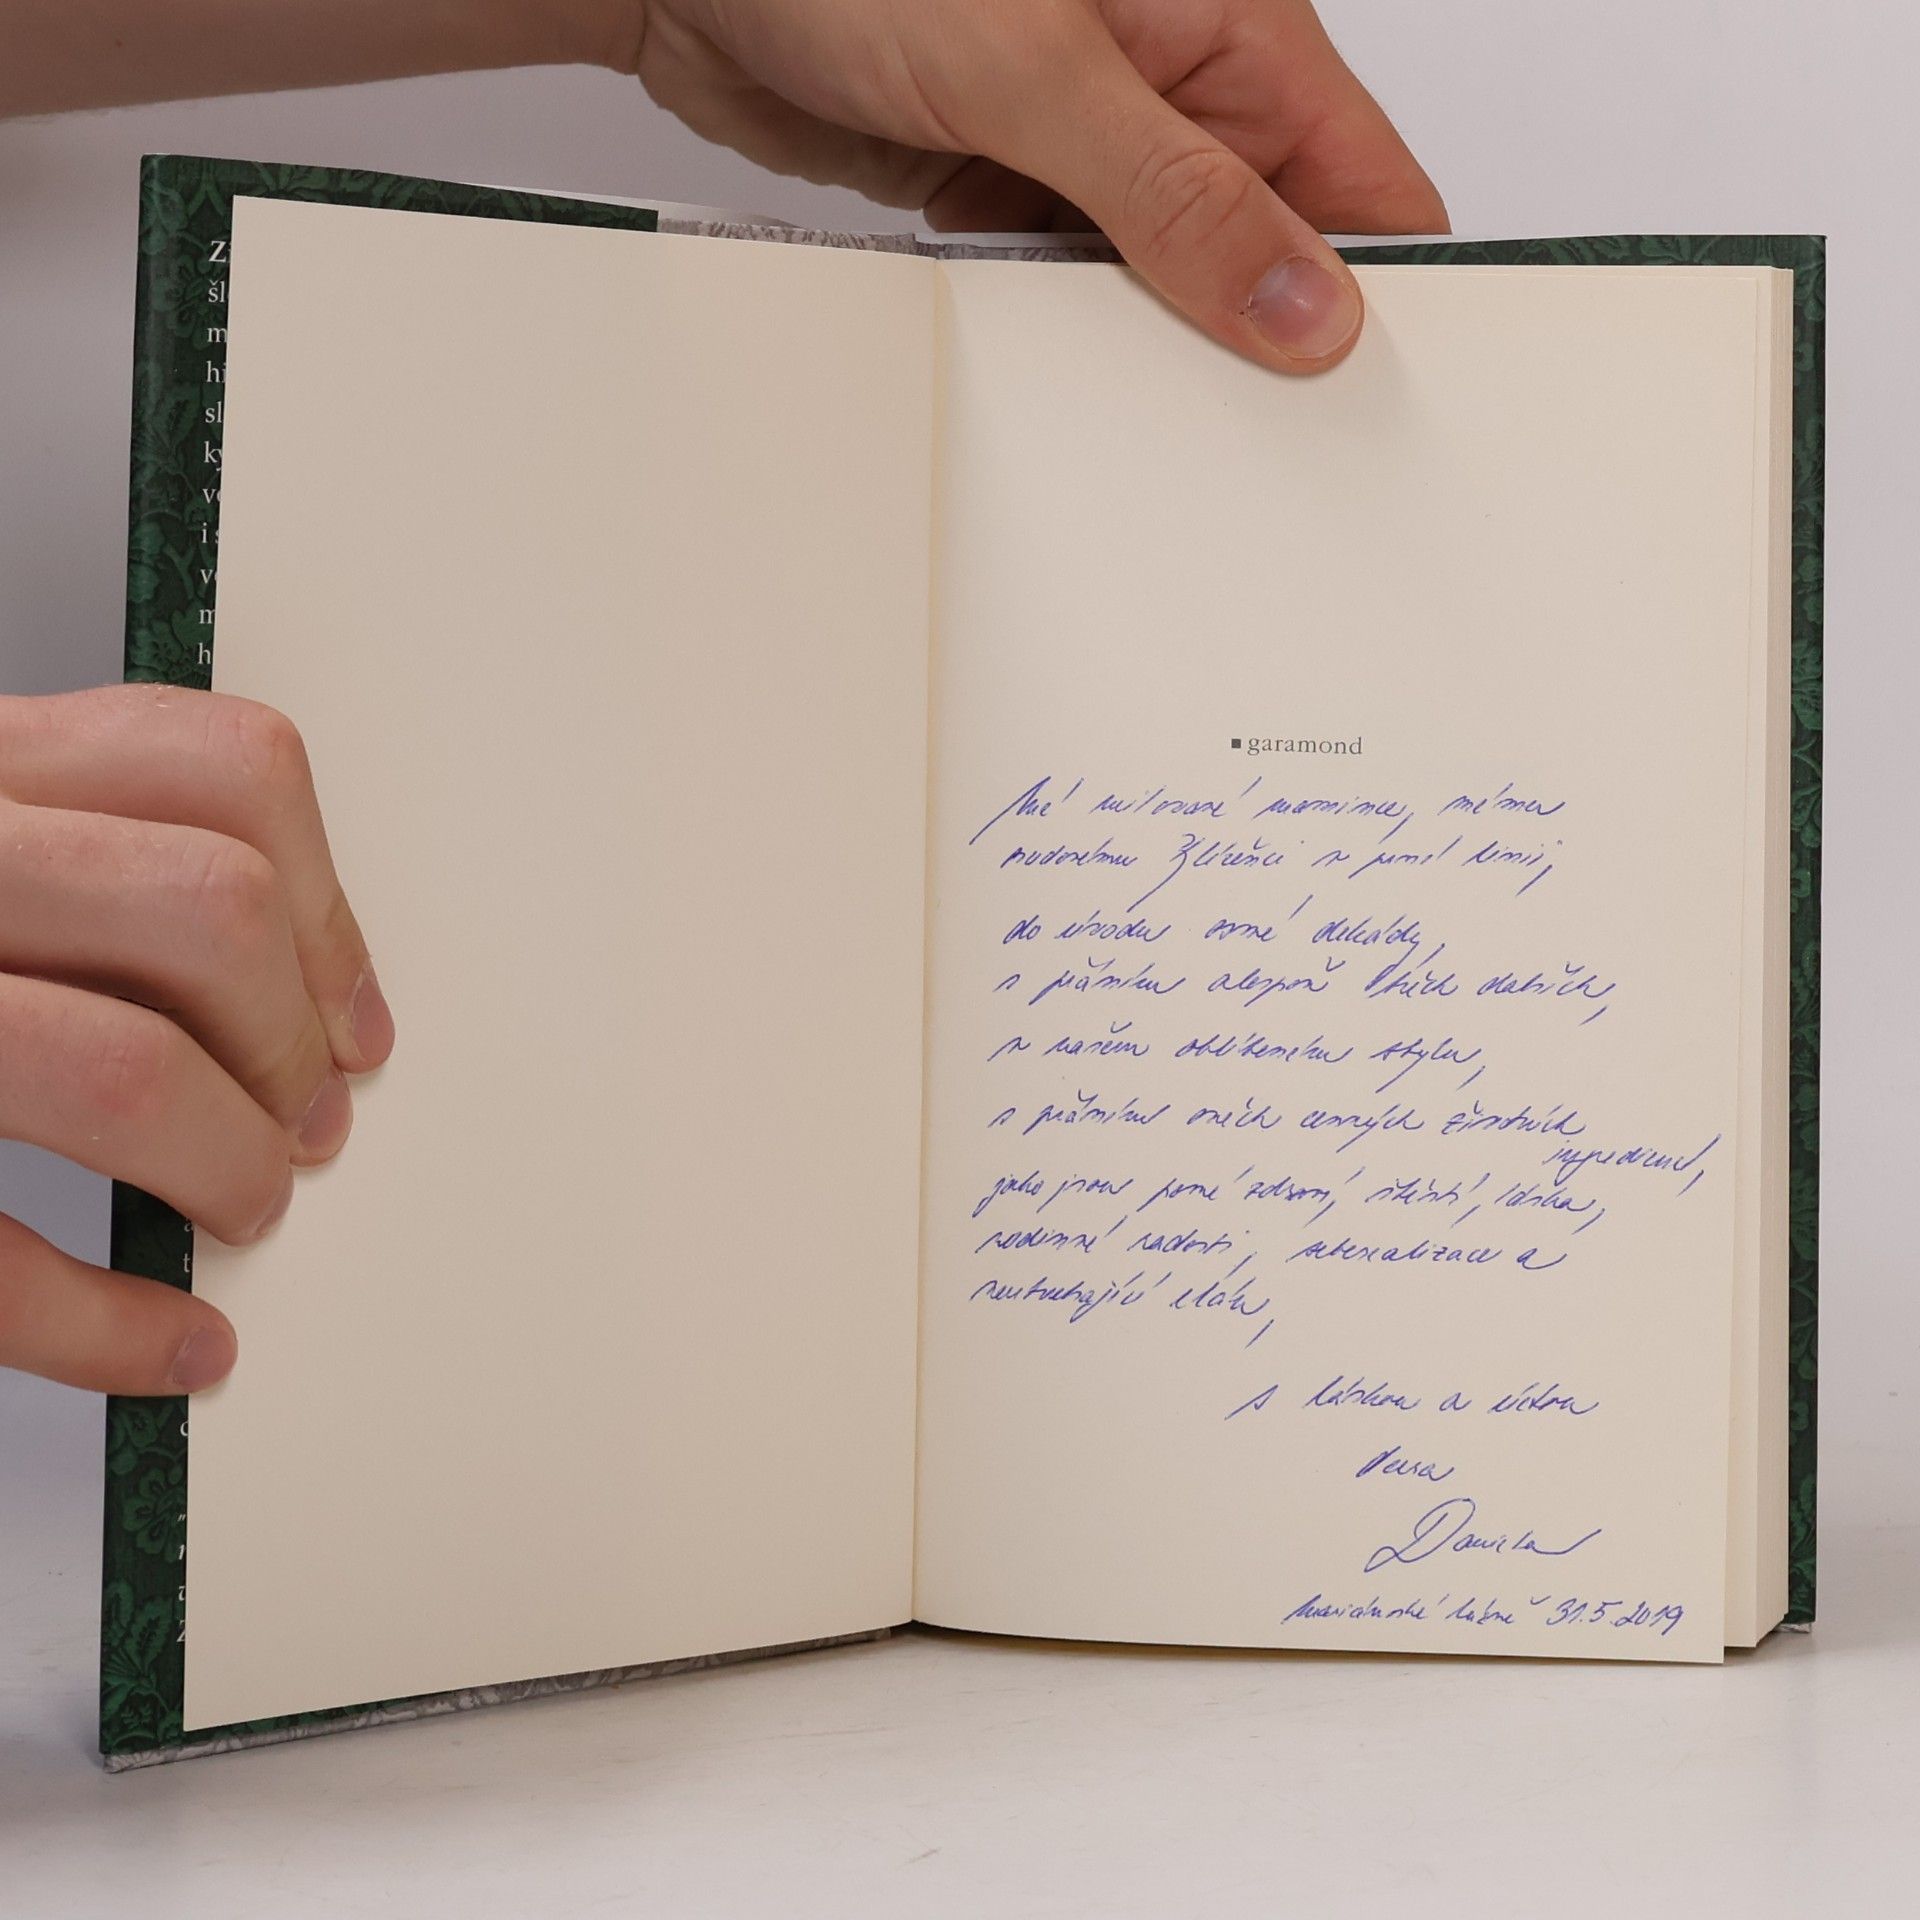 Zi
šl
m
hi
sl
ky
ve
i s
ve
m
h
a
t
■ garamond
Mé milované mamince, mému
rodovému Blíženci v první linii,
do úvodu osmé dekády,
s přáním alespoň třech dalších,
v našem oblíbeném stylu,
s přáním oněch cenných životních
ingrediencí,
jako jsou pevné zdraví, štěstí, láska,
rodinné radosti, seberealizace a
neutuchající elán,
s láskou a úctou
Daniela
Mariánské Lázně 31.5.2019